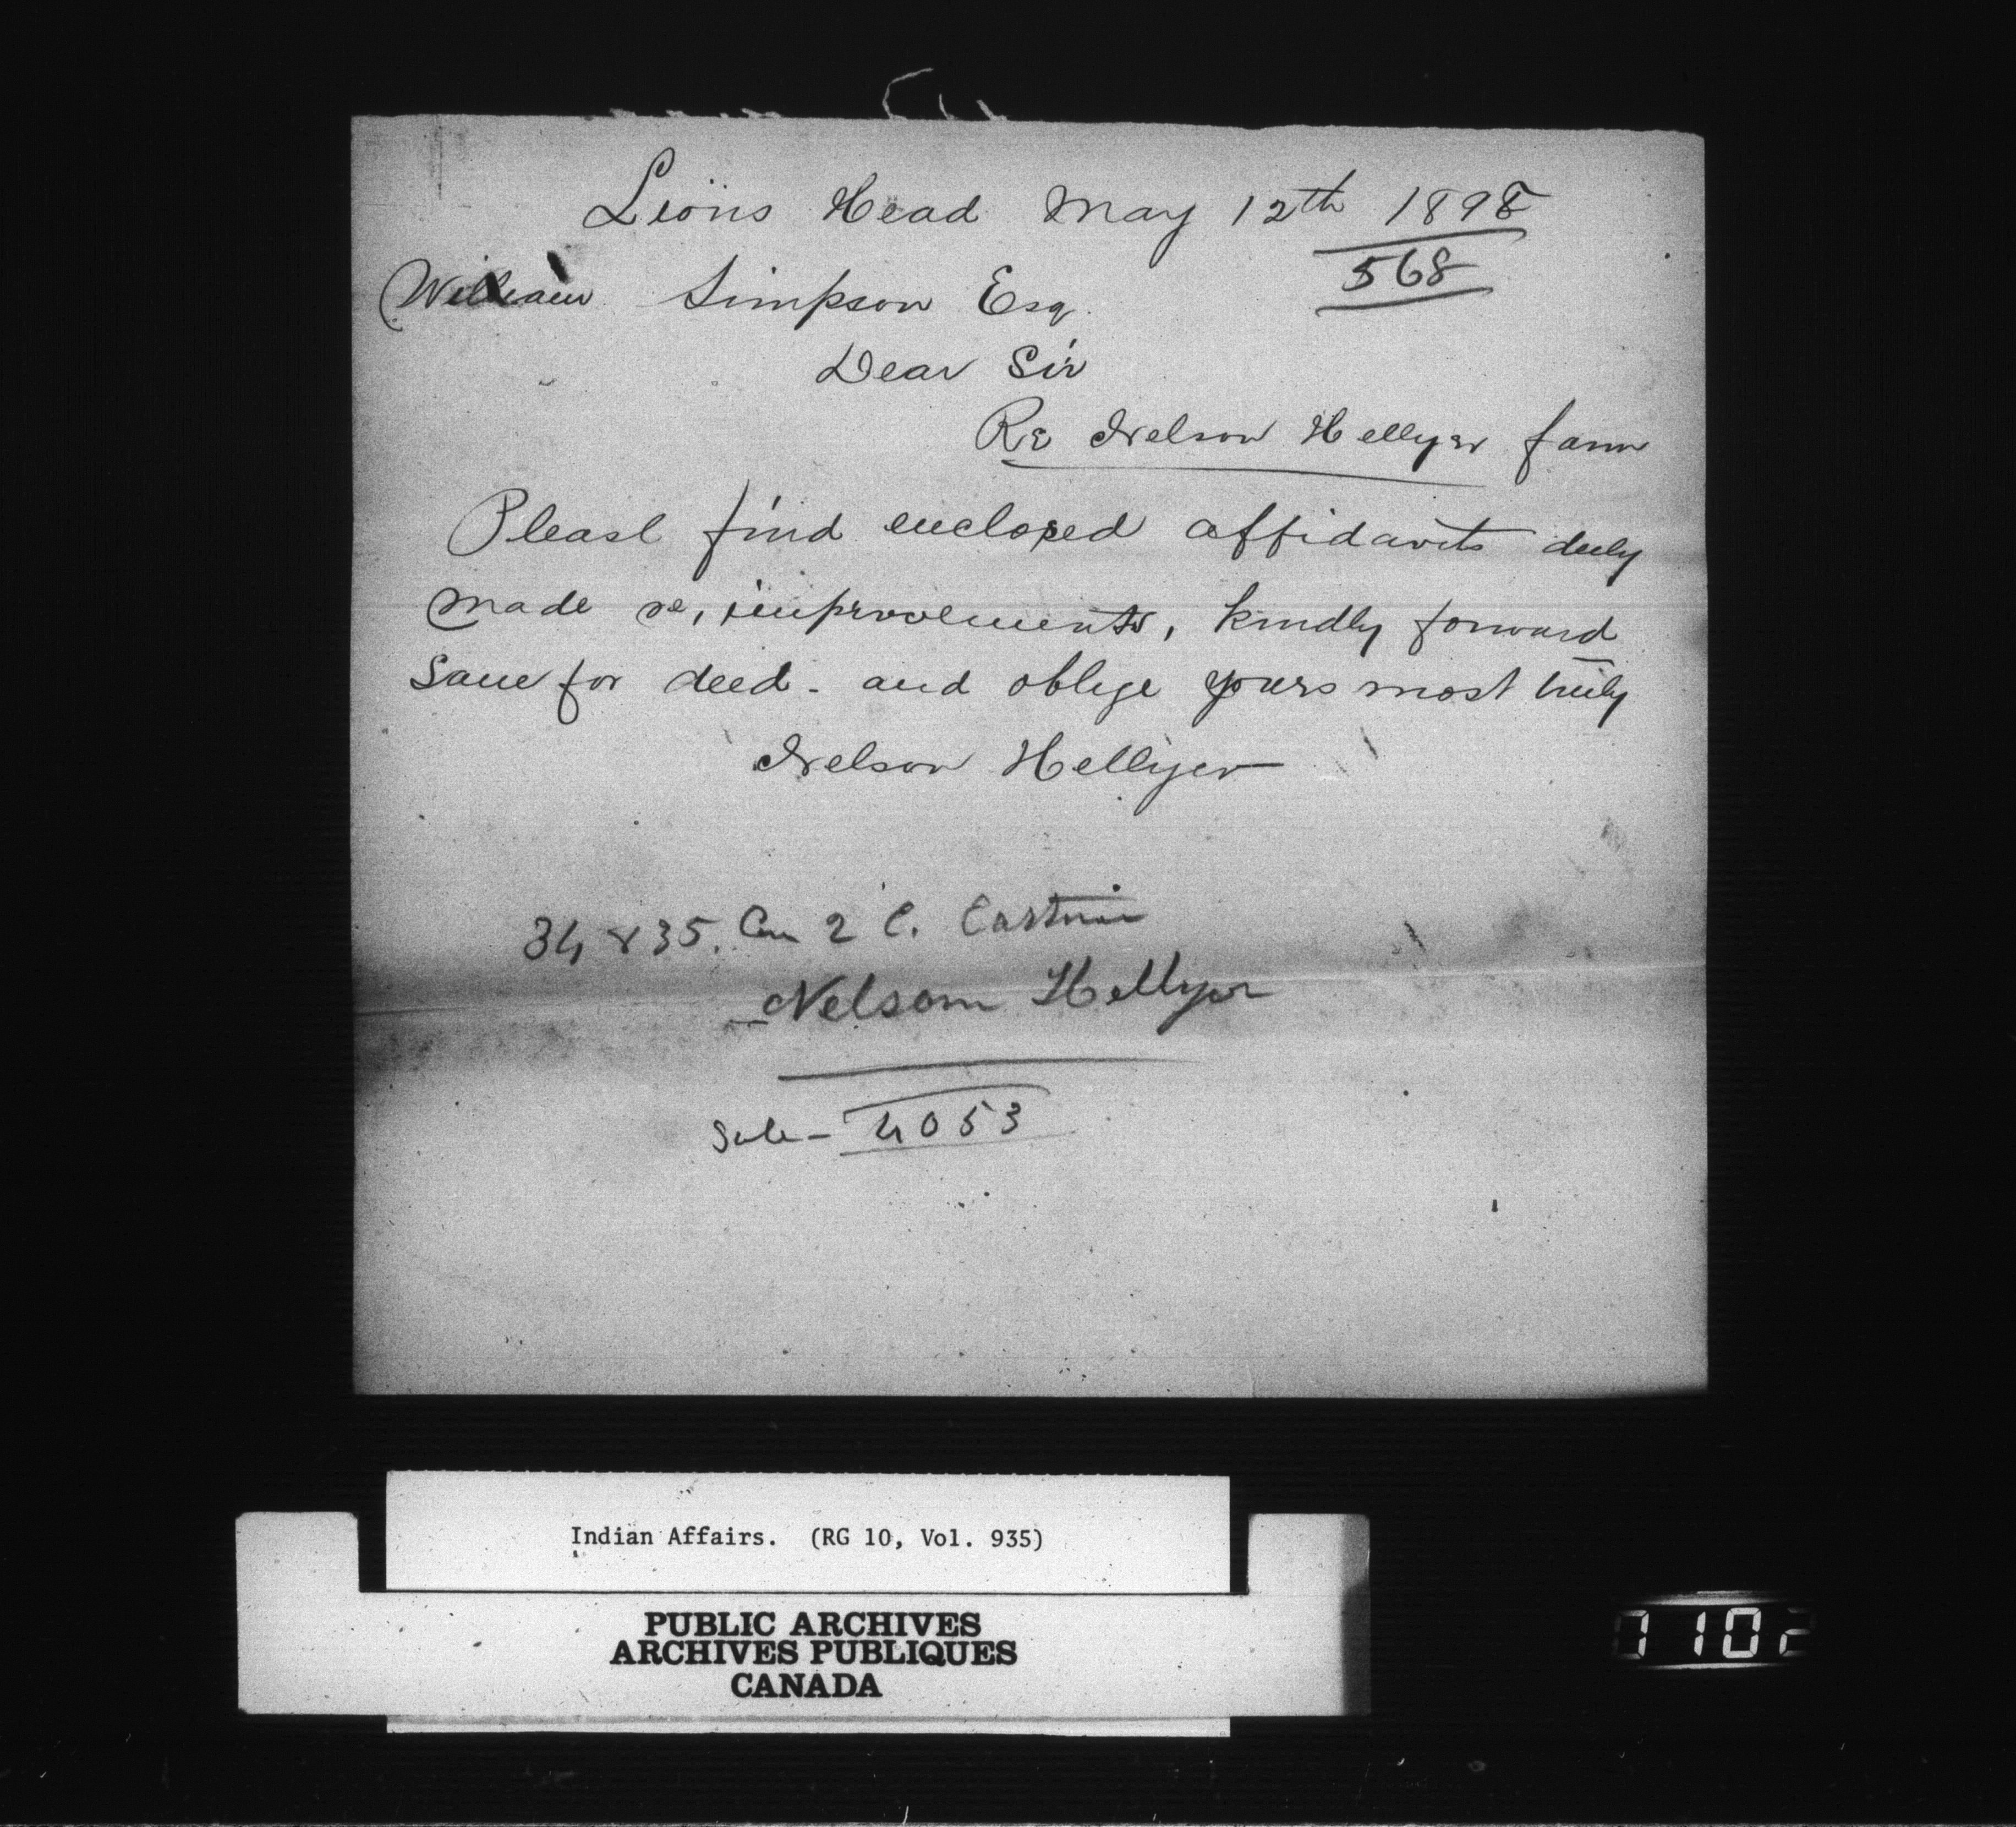 Lions Head May 12th 1898
568
William Simpson Esq.
Dear Sir
Re Nelson Hellyer farm
Please find enclosed affidavits duly
made re, improvements, kindly forward
same for deed - and oblige yours most truly
Nelson Hellyer
34 & 35. Con 2 E. Eastnor
Nelson Hellyer
Sale - 4053
Indian Affairs. (RG 10, Vol. 935)
PUBLIC ARCHIVES
ARCHIVES PUBLIQUES
CANADA
1102